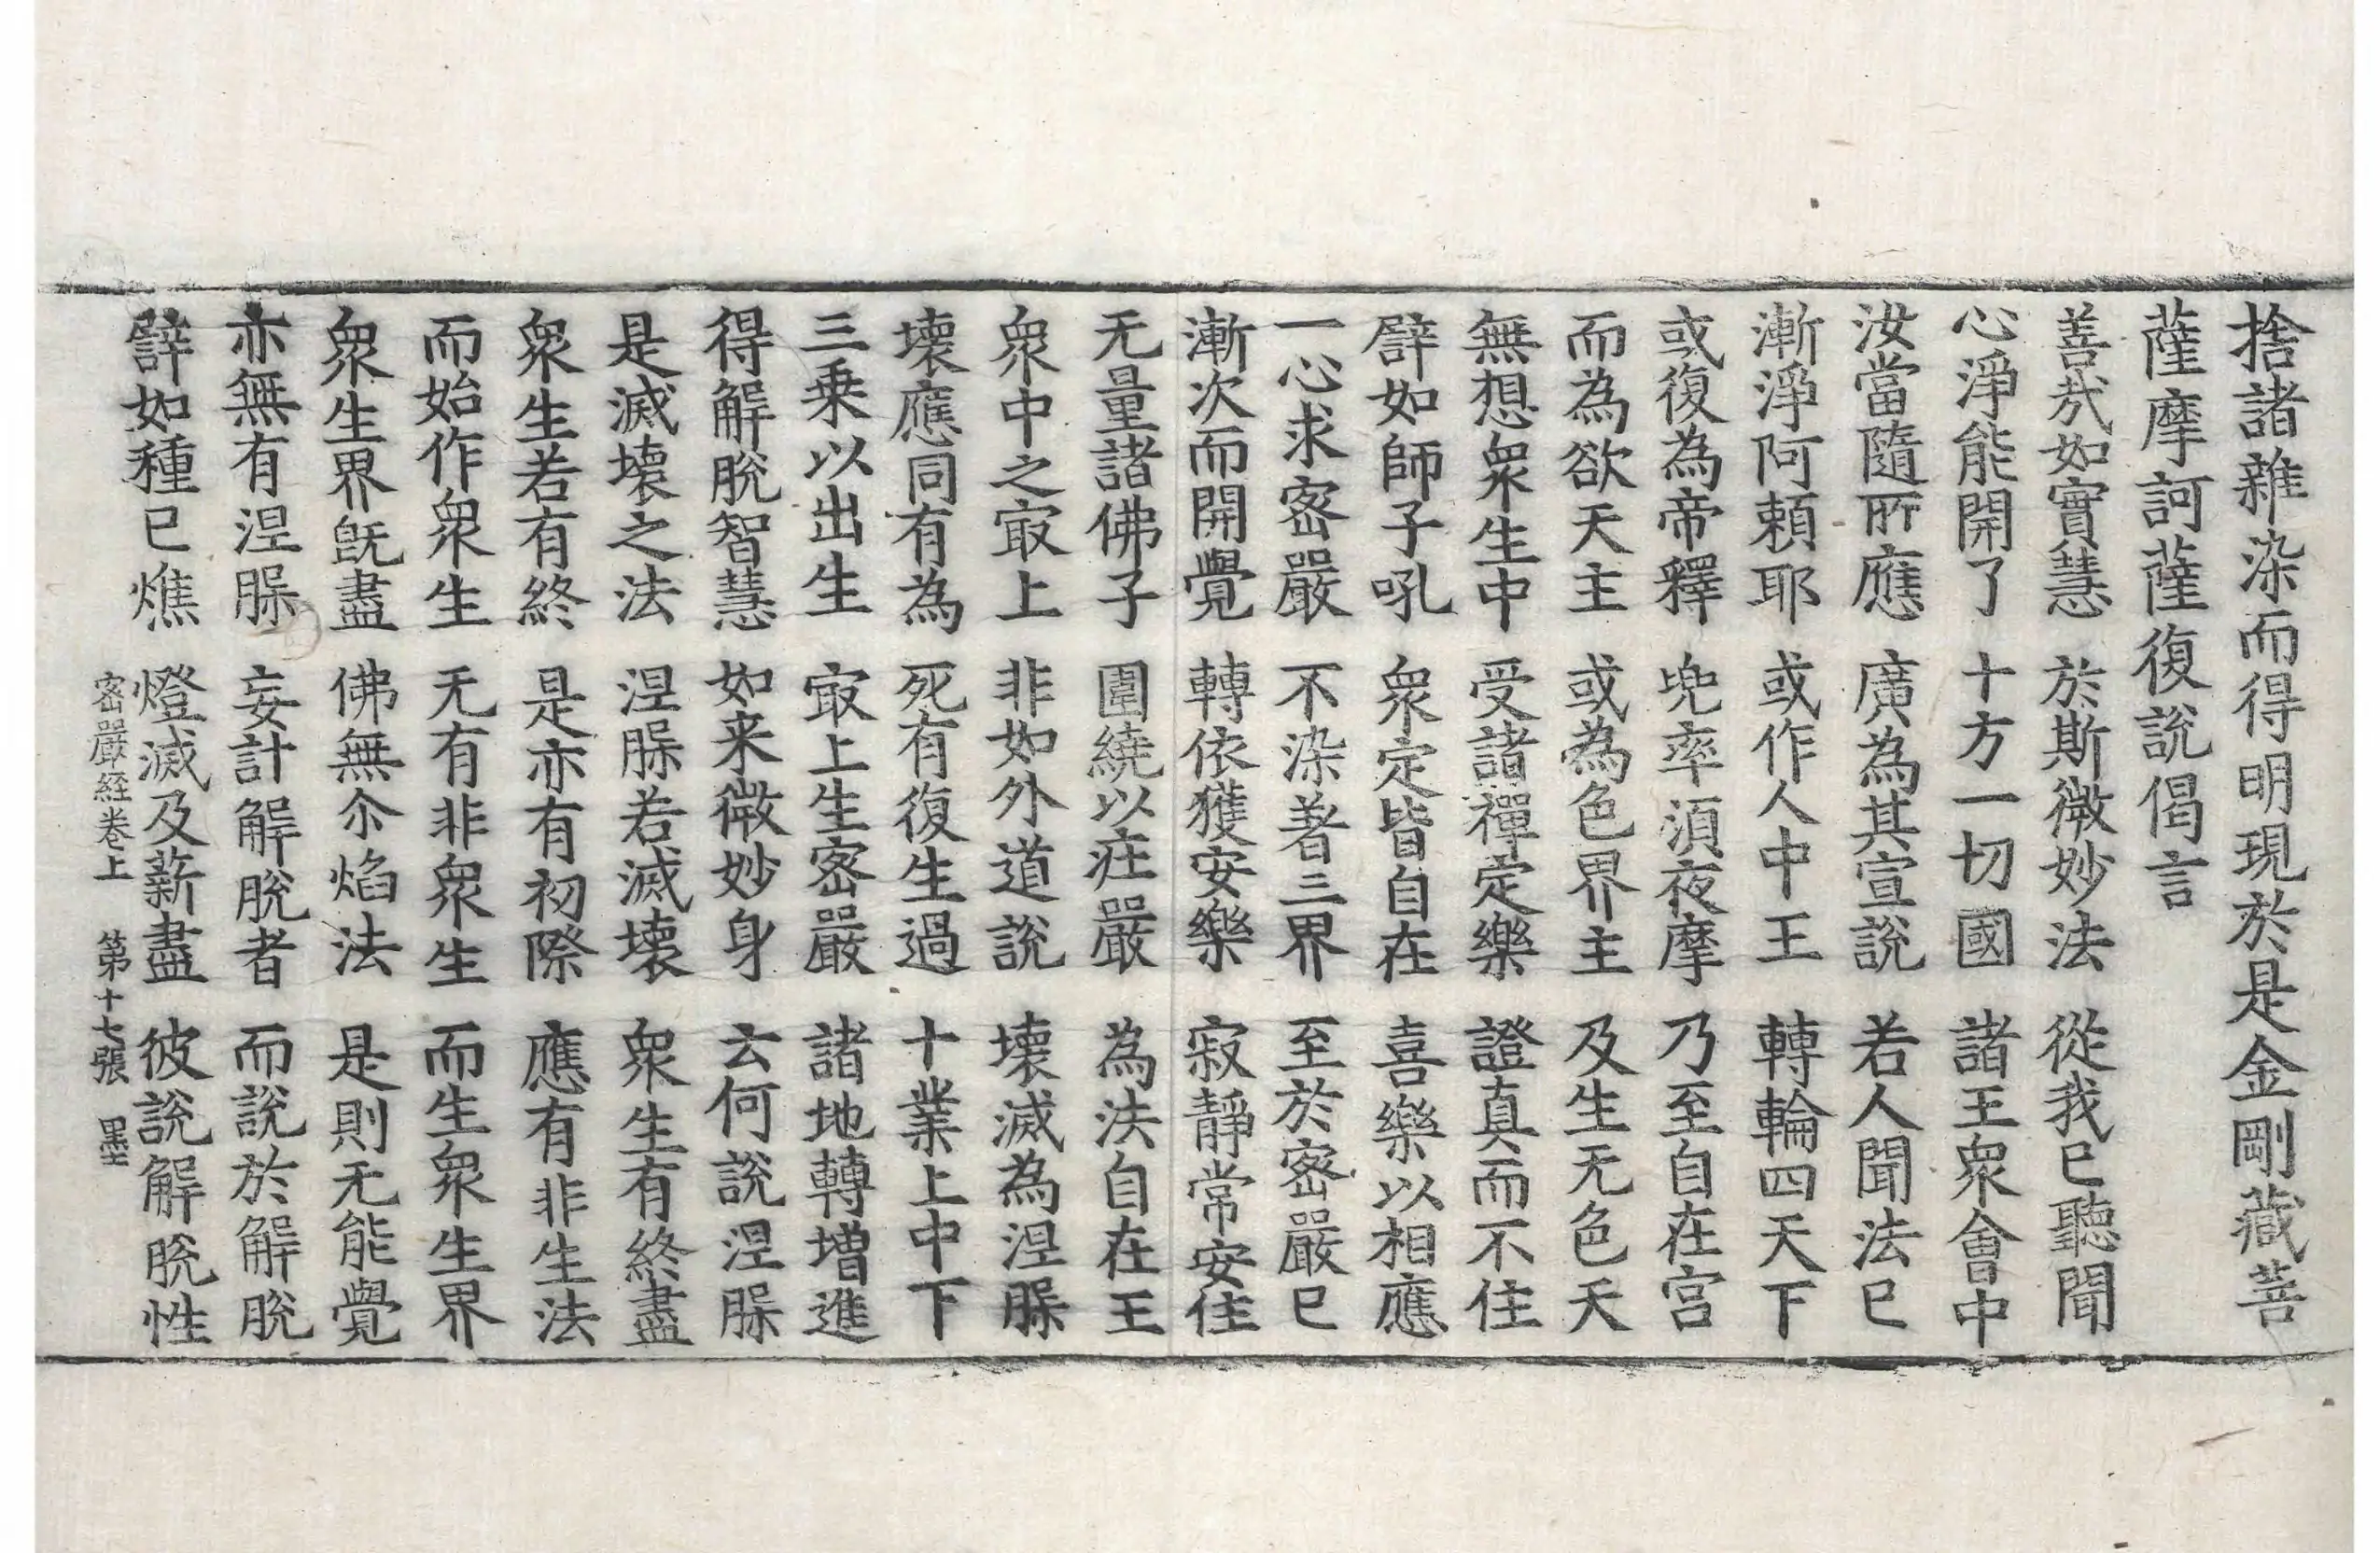 捨諸雜染而得明現於是金剛藏菩
薩摩訶薩復說偈言
善㢤如實慧　於斯微妙法　從我已聽聞
心淨能開了　十方一切國　諸王衆會中
汝當隨所應　廣為其宣說　若人聞法已
漸淨阿賴耶　或作人中王　轉輪四天下
或復為帝釋　兠率湏夜摩　乃至自在宮
而為欲天主　或為色界主　及生无色天
無想衆生中　受諸禪定樂　證真而不住
譬如師子吼　衆定皆自在　喜樂以相應
一心求密嚴　不染著三界　至於密嚴已
漸次而開覺　轉依獲安樂　寂靜常安住
无量諸佛子　圍繞以庄嚴　為法自在王
衆中之㝡上　非如外道說　壞滅為涅脲
壞應同有為　死有復生過　十業上中下
三乗以出生　㝡上生密嚴　諸地轉增進
得解脫智慧　如来微妙身　云何說涅脲
是滅壞之法　涅脲若滅壞　衆生有終盡
衆生若有終　是亦有初際　應有非生法
而始作衆生　无有非衆生　而生衆生界
衆生界旣盡　佛無尒焰法　是則无能覺
亦無有涅脲　妄計解脫者　而說於解脫
譬如種已燋　燈滅及薪盡　彼說解脫性
密嚴経卷上　第十七張　墨